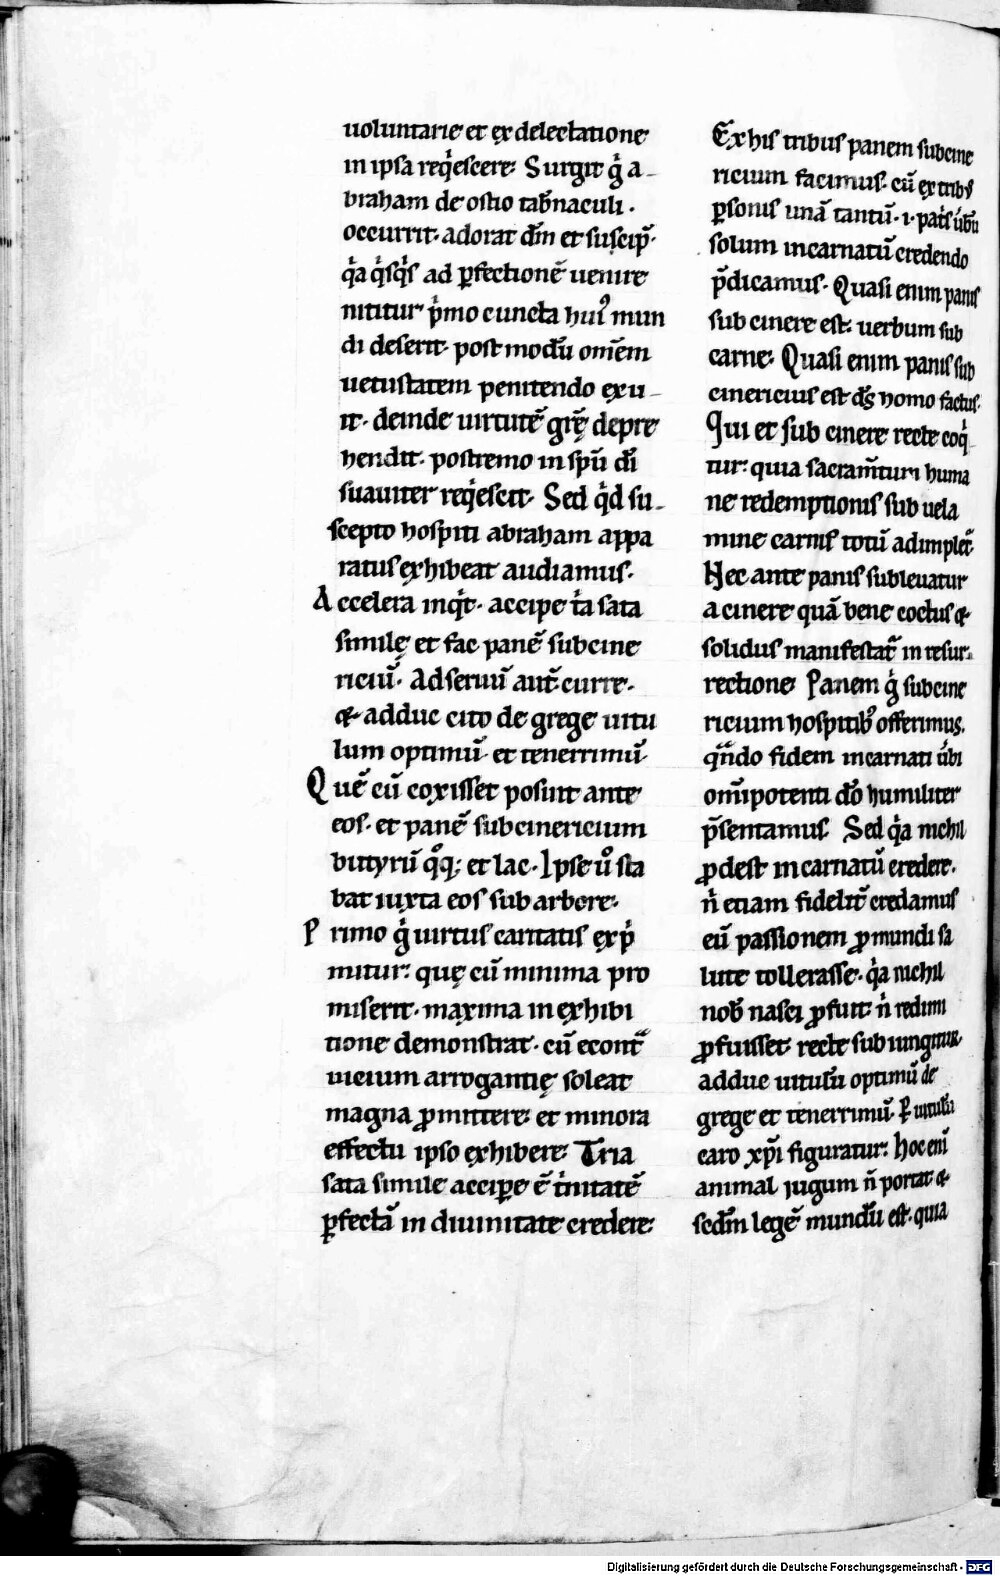 uoluntarie et ex delectatione
in ipsa req̇escere. Surgit g̊ a-
braham de ostio tab̄naculi.
occurrit. adorat dn̄m et suscip̄.
q̇a q̇sq̇s ad ꝑfectionē uenire
nititur ṗmo cuncta hui᾿ mun
di deserit. postmodū om̄em
uetustatem penitendo exu-
it. deinde uirtutē gr̄ę depre
hendit. postremo in sp̄u dī
suauiter req̇escit. Sed q̇d su-
scepto hospiti abraham appa
ratus exhibeat audiamus.
Accelera inq̇t. accipe tⁱa sata
similę et fac panē subcine
riciū. Ad seruū aut̄ curre.
& adduc cito de grege uitu
lum optimū et tenerrimū.
Quē cū coxisset posuit ante
eos. et panē subcinericium
butyrū q̊q; et lac. Ipse ů sta
bat iuxta eos sub arbore.
Primo g̊ uirtus caritatis exṗ
mitur. quę cū minima pro
miserit. maxima in exhibi
tione demonstrat. cū econtᵃ
uicium arrogantię soleat
magna ꝓmittere. et minora
effectu ipso exhibere. Tria
sata simile accipere ē tⁱnitatē
ꝑfectā in diuinitate credere.
Ex his tribus panem subcine
ricium facimus. cū ex tribꝰ
ꝑsonis unā tantū. i. pat̄s ůbū
solum incarnatū credendo
p̄dicamus. Quasi enim panis
sub cinere est. uerbum sub
carne. Quasi enim panis sub
cinericius est ds̄ homo factus.
Qui et sub cinere recte coq̇
tur. quia sacram̄tum huma
ne redemptionis sub uela
mine carnis totū adimplet᷑.
Hec ante panis subleuatur
a cinere quā bene coctus &
solidus manifestat᷑ in resur-
rectione. Panem g̊ subcine
ricium hospitibꝰ offerimus.
qᵃndo fidem incarnati ůbi
om̄ipotenti dō humiliter
p̄sentamus. Sed q̇a nichil
ꝓdest incarnatū credere.
n̄ etiam fidelit̄ credamus
eū passionem ꝓ mundi sa
lute tollerasse. q̇a nichil
nob̄ nasci ꝓfuit n̄ redimi
ꝓfuisset. recte subiungitur.
adduc uitulū optimū de
grege et tenerrimū. ꝑ uitulū
caro xp̄i figuratur. Hoc eni
animal iugum n̄ portat &
sc̄dm legē mundū est. quia
Digitalisierung gefördert durch die Deutsche Forschungsgemeinschaft - DFG